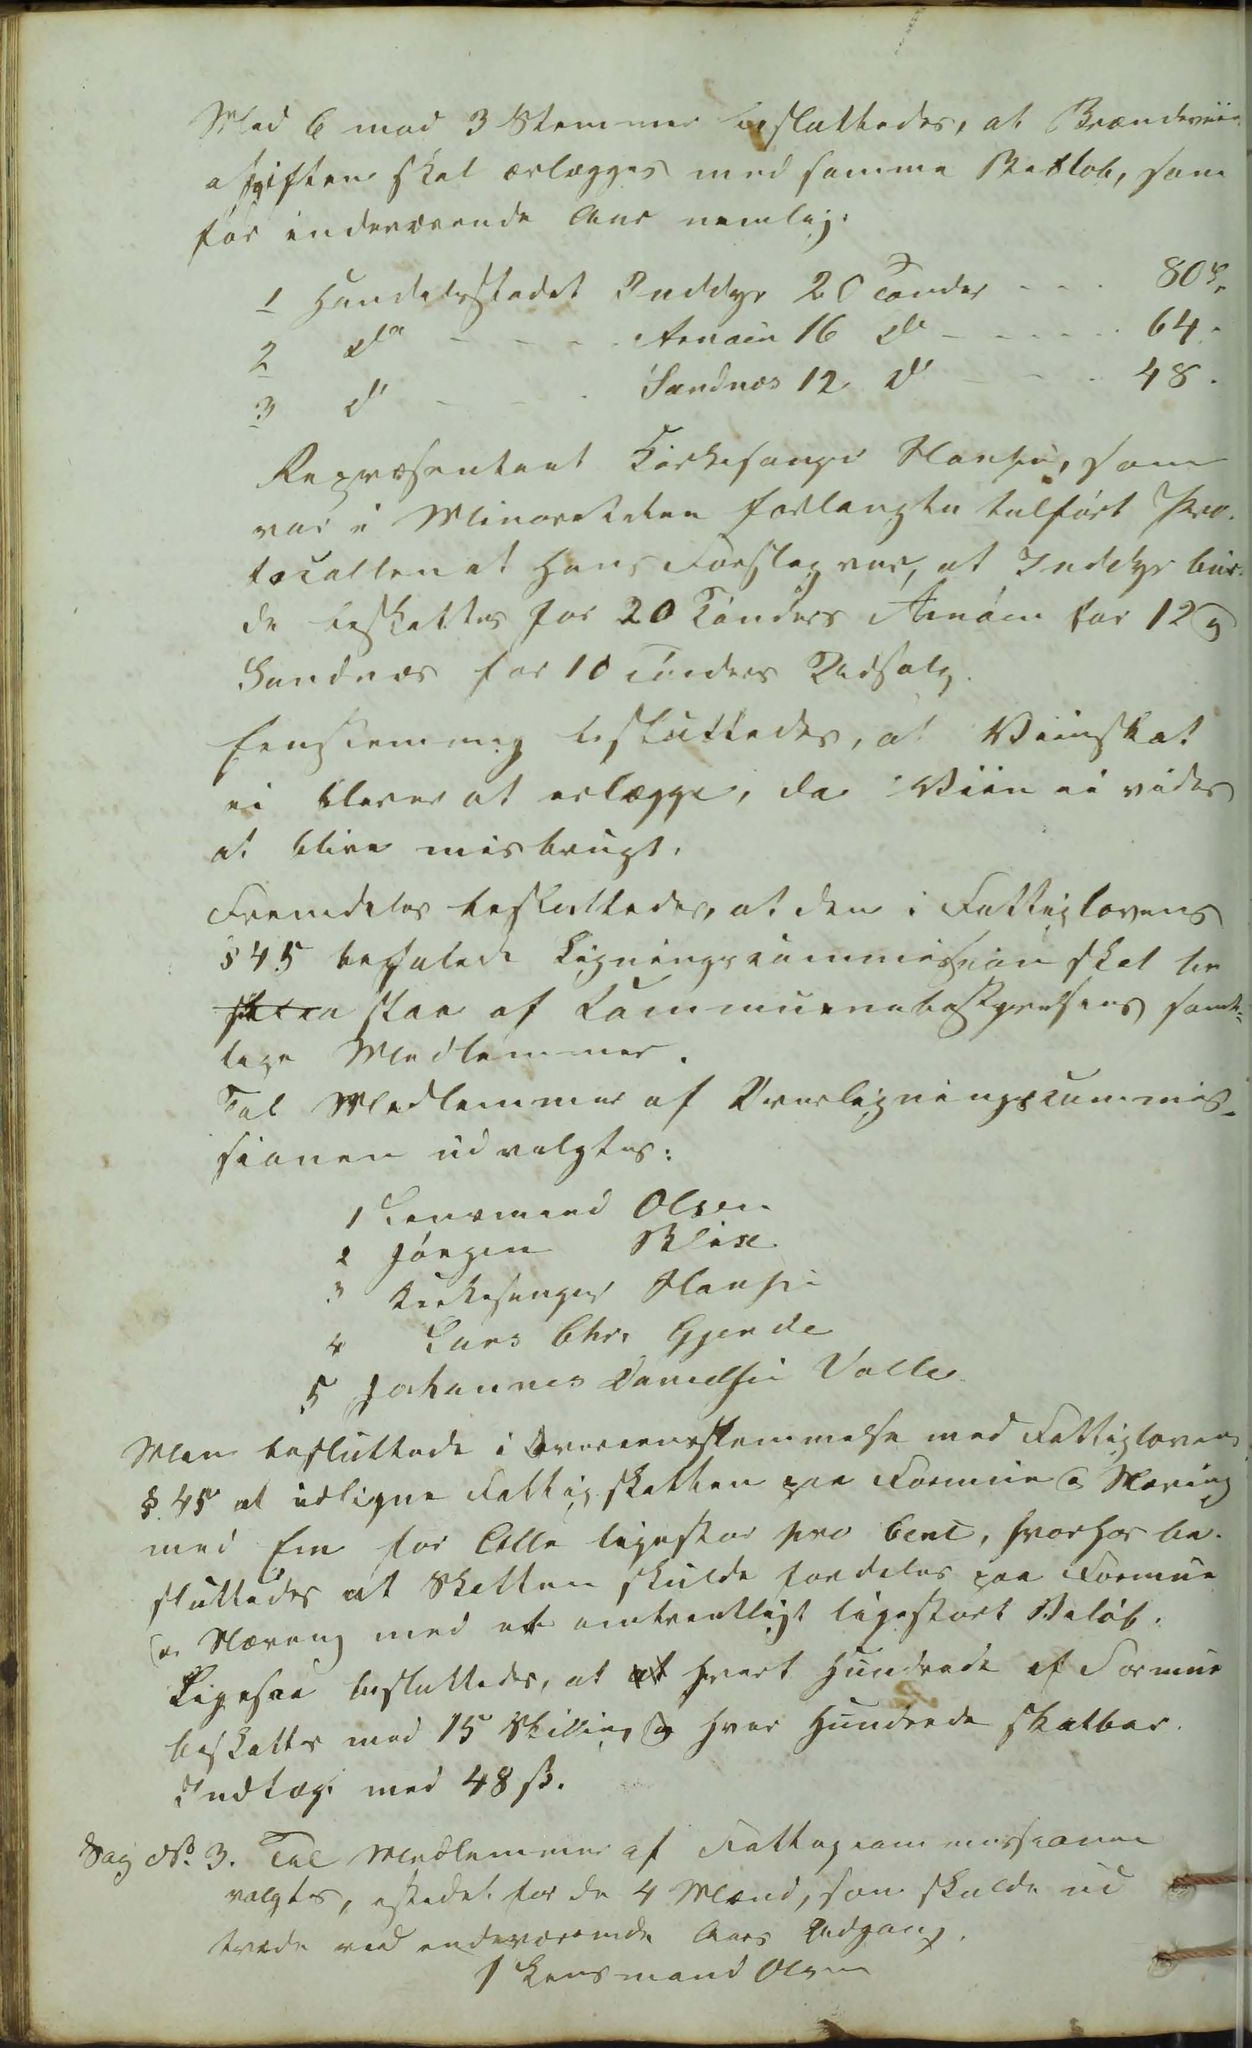 Med 6 mod 3 Stemmer besluttedes, at Brændeviins
afgiften skal erlægges med samme Belløb, som
for indeværende Aar nemlig:
1 Handelsstedet Inddyr 20 Tønder - - - 80 ß.
2 Do - - - Arnøen 16 Do - - - - 64 -
3 Do - - - Sandnæs 12 Do - - - 48 -
Repræsentant Kirkesanger Hansen, som
var i Minoriteten forlangte tilført Pro-
tocollen at hans Forslag var, at Inddyr bur-
de beskattes for 20 Tønders Arnøen for 12 og
Sandnæs for 10 Tønders Udsalg.
Eenstemmig besluttedes, at Viinskat
ei bliver at erlægge, da Viin ei vides
at blive misbrugt.
Fremdeles besluttedes, at den i Fattiglovens
§ 45 befalede Ligningscommission skal be
staa af Communebestyrelsens samt-
lige Medlemmer.
Til Medlemmer af Overligningscommis-
sionen udvalgtes:
1 Lensmand Olsen
2 Jørgen Blix
3 Kirkesanger Hansen
4 Lars Chr. Gjerde
5 Johannes Danielsen Valle
Man besluttede i Overeensstemmelse med Fattiglovens
§ 45 at udligne Fattigskatten paa Formue & Næring
med Een for Alle ligestor pro Cent, hvorhos be-
sluttedes at Skatten skulde fordeles paa Formue
& Næring med et omtrentligt ligestort Beløb.
Ligesaa besluttedes, at hvert Hundrede af Formue
beskattes med 15 Skilling og hver Hundrede skatbar
Indtægt med 48 ß.
Sag No. 3. Til Medlemmer af Fattigcommissionen
valgtes, istedet for de 4 Mænd, som skulde ud
træde ved indeværende Aars Udgang.
1 Lensmand Olsen